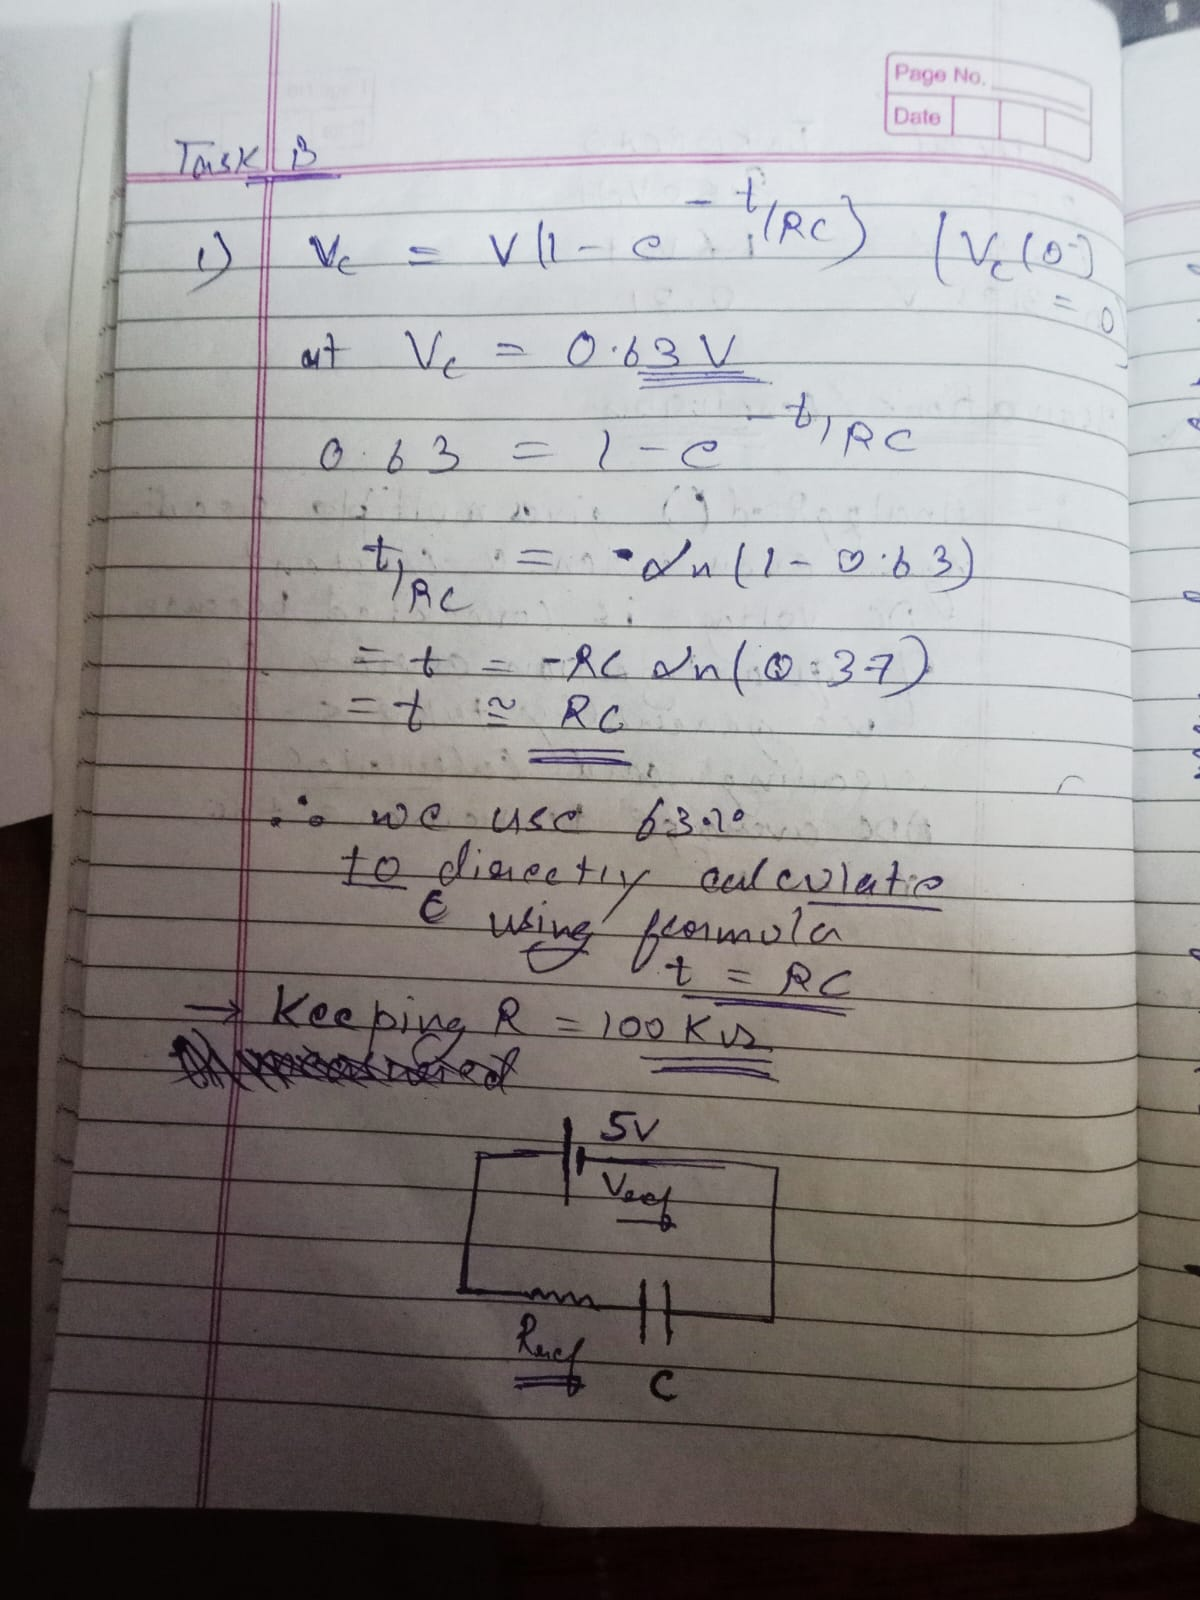 Page No.
Date
Task B
1) Vc = V(1 - e^-t/RC) (Vc(0-) = 0)
at Vc = 0.63 V
0.63 = 1 - e^-t/RC
t/RC = -ln(1 - 0.63)
= t = -RC ln(0.37)
= t ≅ RC
∴ we use 63%
to directly calculate
C using formula
t = RC
→ Keeping R = 100 KΩ
5V
Vref
Rref
C